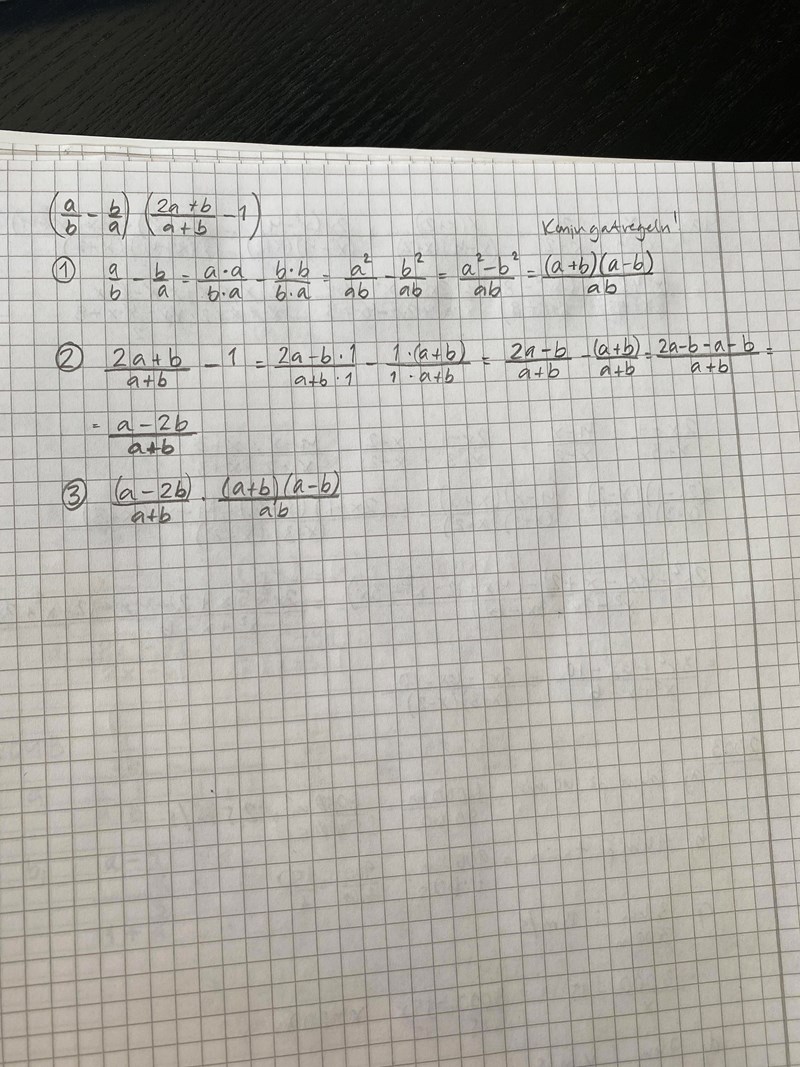 (a/b - b/a) (2a+b/a+b - 1)
Konjugatregeln!
① a/b - b/a = a·a/b·a - b·b/b·a = a²/ab - b²/ab = a²-b²/ab = (a+b)(a-b)/ab
② 2a+b/a+b - 1 = 2a-b·1/a+b·1 - 1·(a+b)/1·a+b = 2a-b/a+b - (a+b)/a+b = 2a-b-a-b/a+b =
= a-2b/a+b
③ (a-2b)/a+b · (a+b)(a-b)/ab